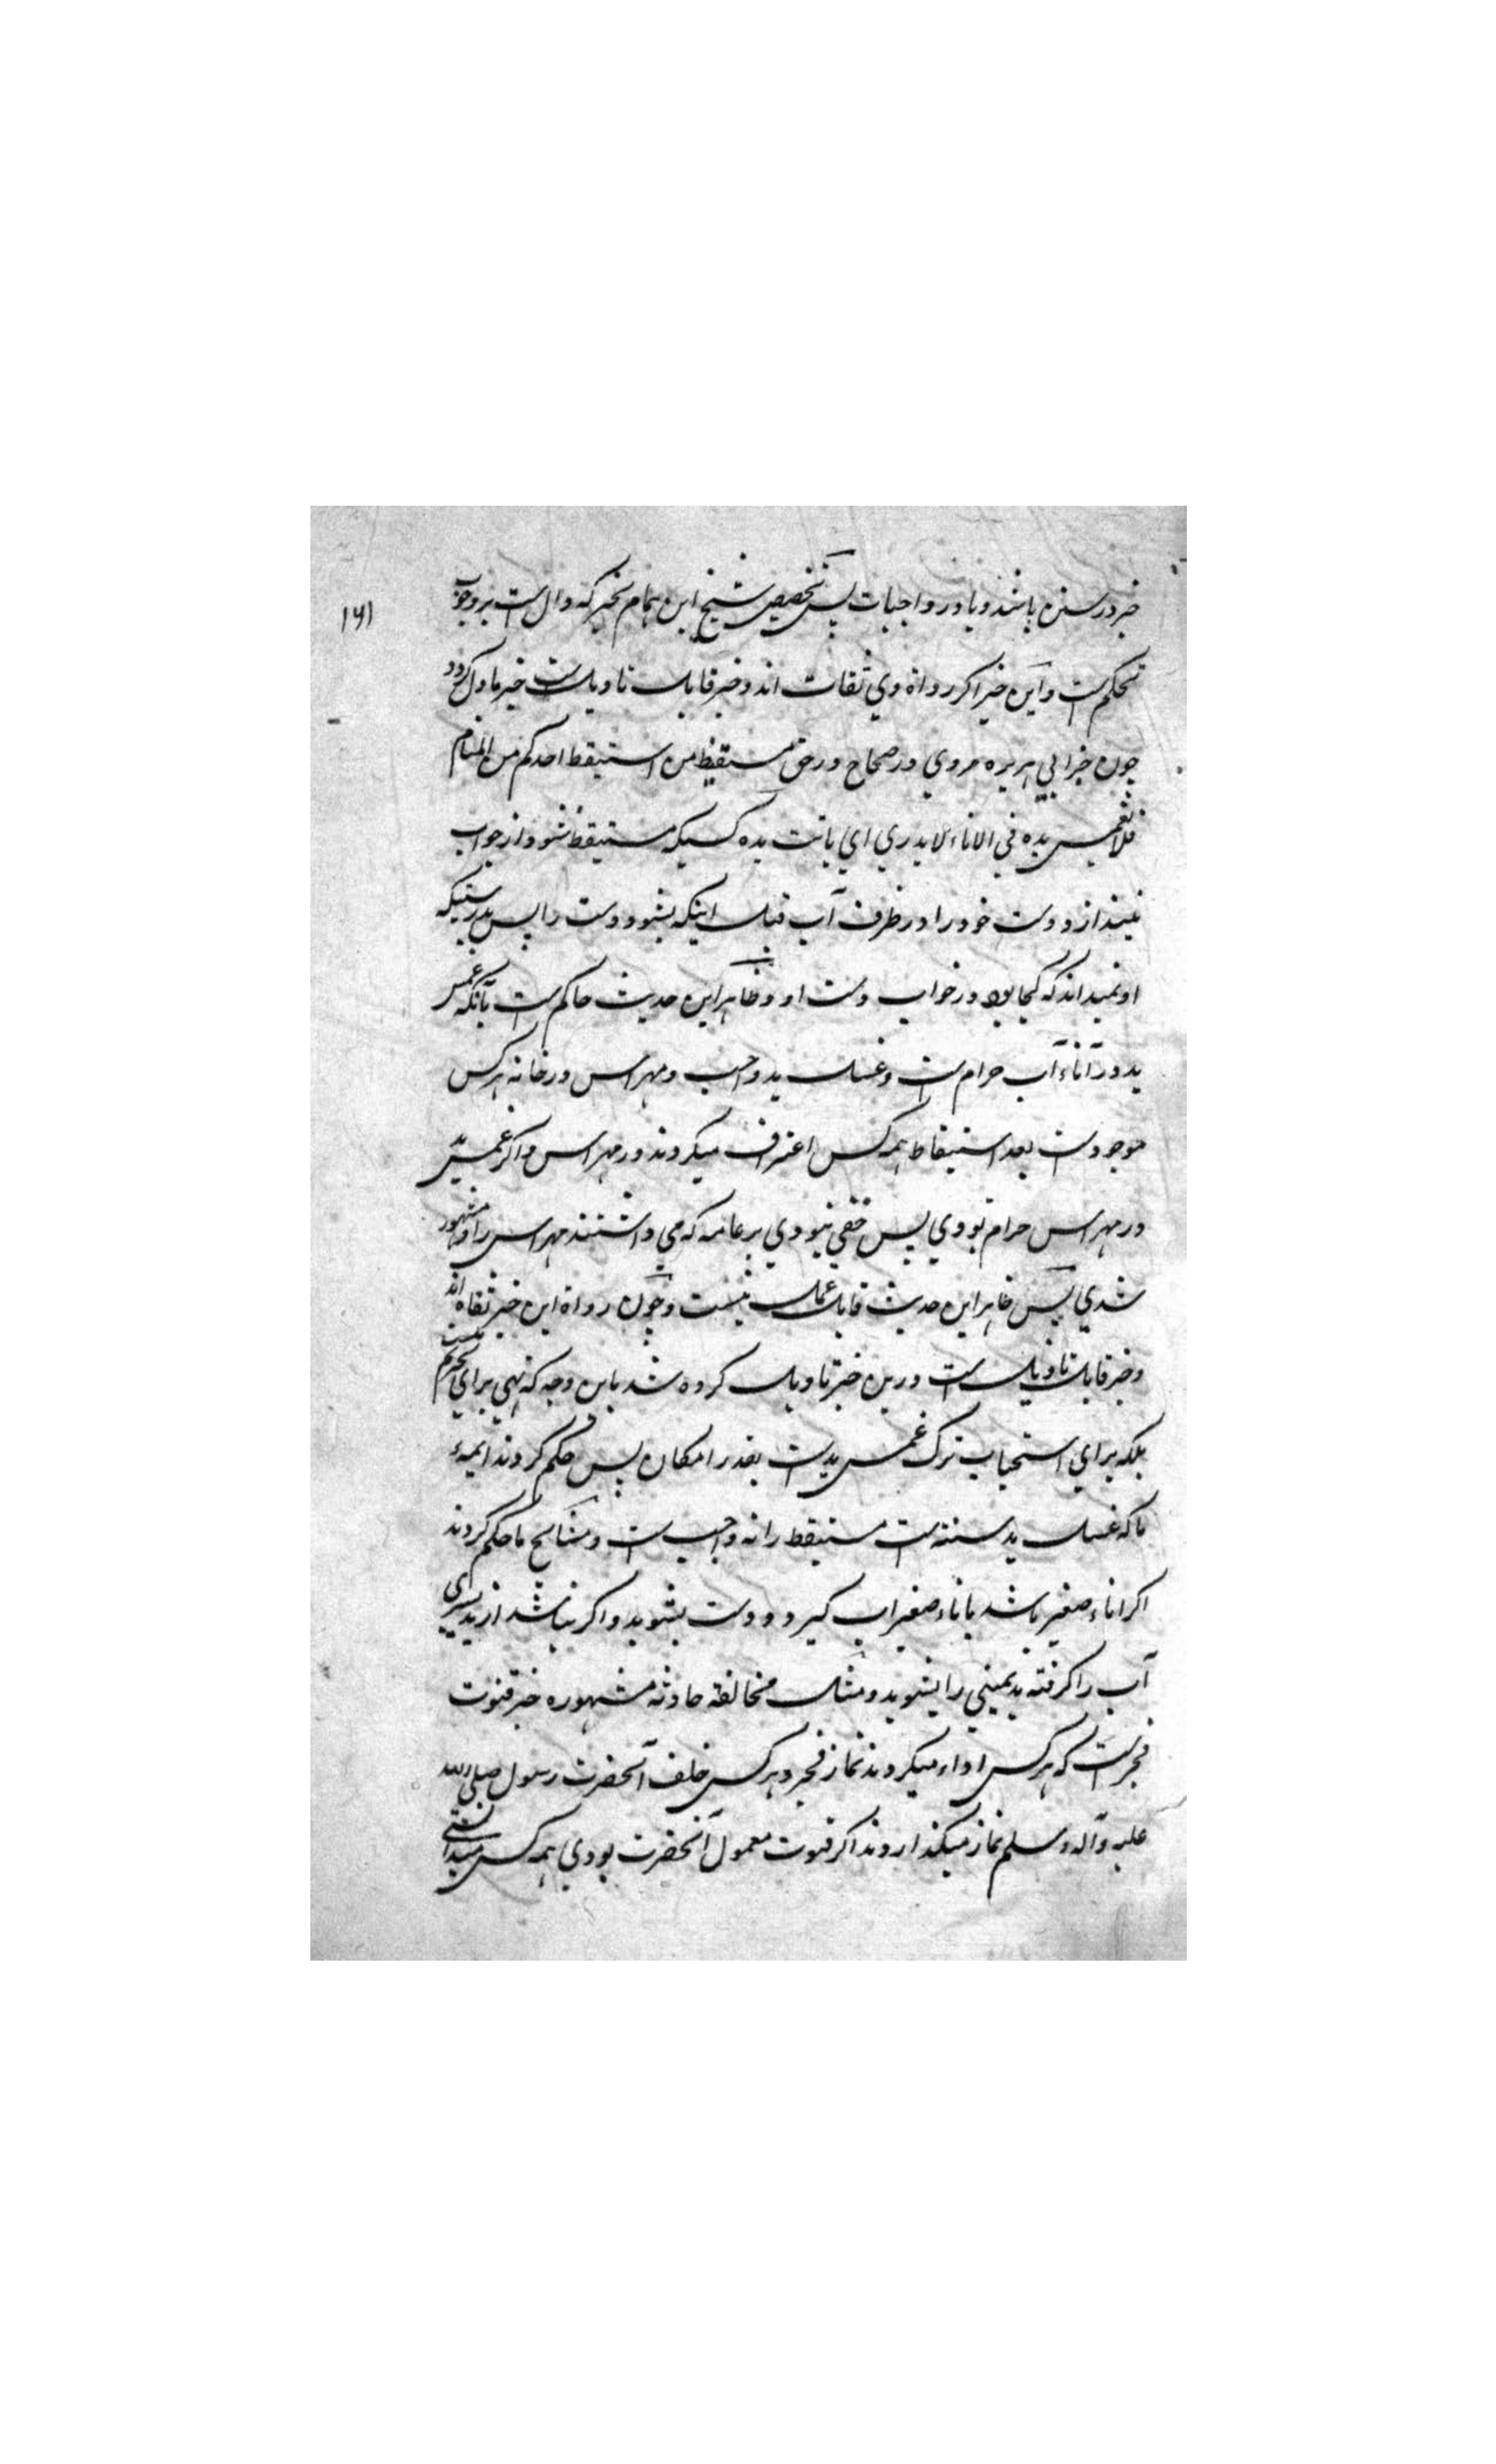 خبر در سنن باشند و یا در واجبات پس تخصیص شیخ ابن همام بخبر که دال است بر وجوب
۱۶۱
تحکم است و این خبر اگر رواة وي ثقات اند و خبر قابل تاویل است خبر ماول گردد
چون خبر ابي هریره مروي در صحاح در حق مستیقظ من استیقظ احدکم من المنام
فلا یغمس یده في الاناء لا یدري این باتت یده کسیکه مستیقظ شود از خواب
نیندازد دست خود را در ظرف آب قبل اینکه بشوود دست را پس بدرستیکه
او نمیداند که کجا بود در خواب دست او و ظاهر این حدیث حاکم است بآنکه غمس
ید در آناء آب حرام است و غسل ید واجب و مهراس در خانه هر کس
موجود است بعد استیقاظ همه کس اغتراف میکردند در مهراس و اگر غمس ید
در مهراس حرام بودي پس خفي نبودي بر عامه که مي داشتند مهراس را و مشهور
شدي پس ظاهر این حدیث قابل عمل نیست و چون رواة این خبر ثقاه اند
و خبر قابل تاویل است درین خبر تاویل کرده شد باین وجه که نهي براي تحریم نیست
بلکه براي استحباب ترک غمس ید است بقدر امکان پس حکم کردند ایمهء
ما که غسل ید سنته است مستیقظ را نه واجب است و مشائخ ما حکم کردند
اگر اناء صغیر باشد باناء صغیر آب گیرد و دست بشوید و اگر نباشد از ید یسري
آب را گرفته ید یمیني را بشوید و مثل مخالفة حادثه مشهوره خبر قنوت
فجر است که هر کس اداء میکردند نماز فجر و هر کس خلف آنحضرت رسول صلي الله
علیه وآله وسلم نماز میگذاردند اگر قنوت معمول آنحضرت بودي همه کس میدانستي